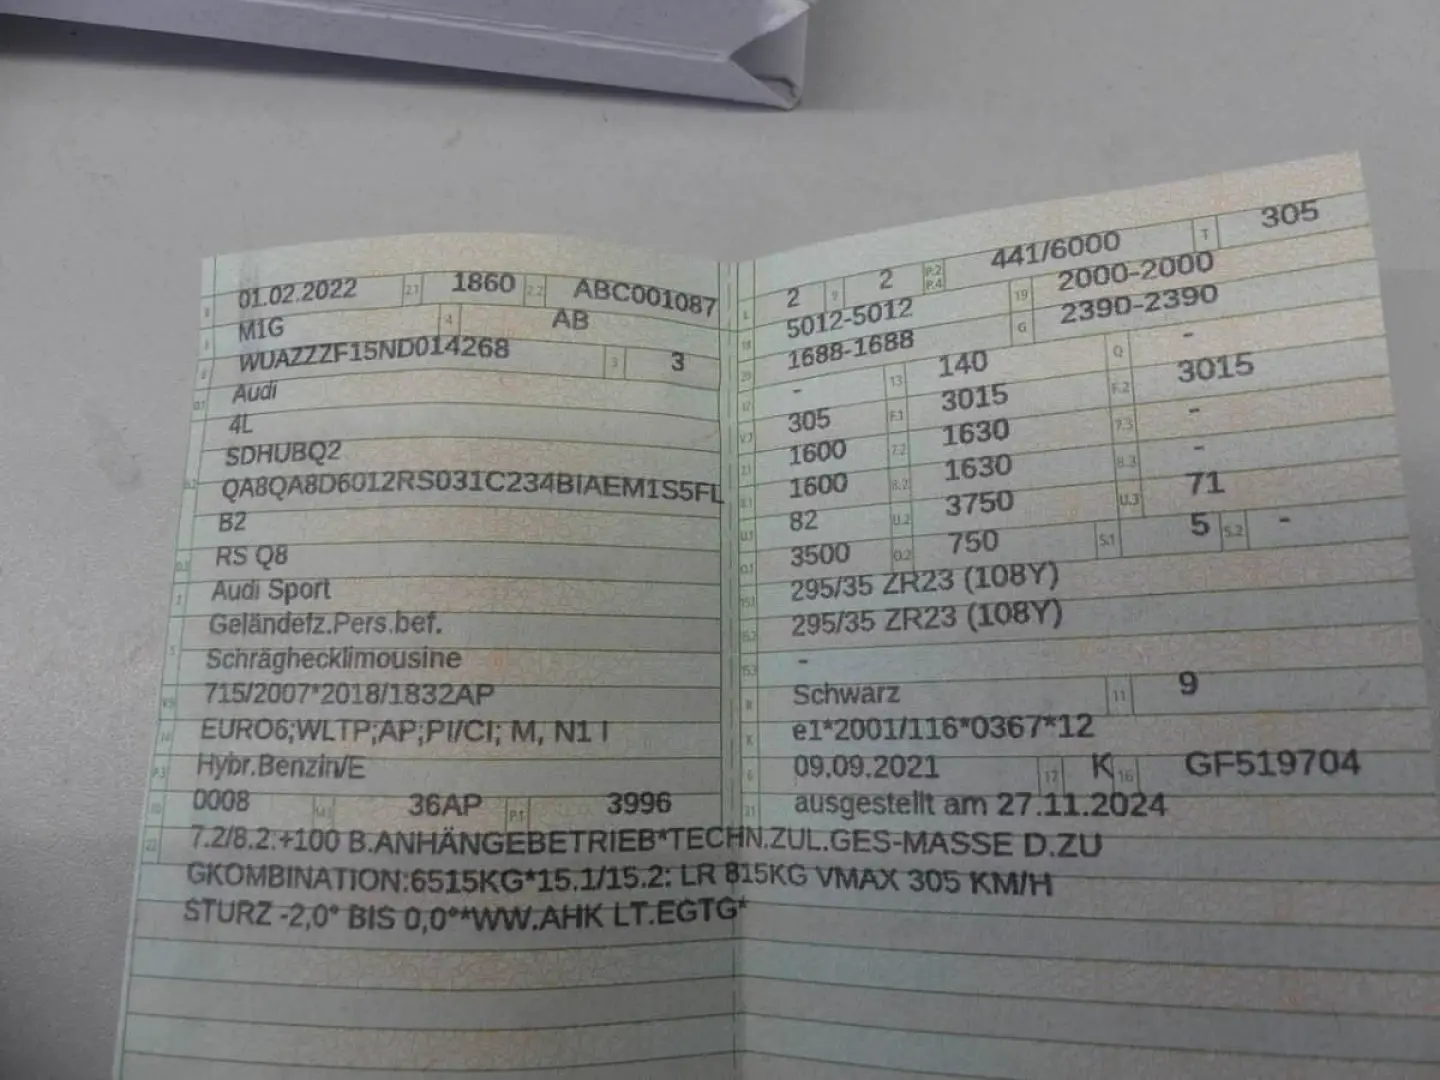 01.02.2022 2.1 1860 2.2 ABC001087
M1G 4 AB
WUAZZZF15ND014268 3 3
Audi
4L
SDHUBQ2
QA8QA8D6012RS031C234BIAEM1S5FL
B2
RS Q8
Audi Sport
Geländefz.Pers.bef.
Schräghecklimousine
715/2007*2018/1832AP
EURO6;WLTP;AP;PI/CI; M, N1 I
Hybr.Benzin/E
0008 36AP P.1 3996
2 9 2 P.2 P.4 441/6000 T 305
5012-5012 19 2000-2000
1688-1688 G 2390-2390
- 13 140 Q -
305 F.1 3015 F.2 3015
1600 7.2 1630 7.3 -
1600 8.2 1630 8.3 -
82 U.2 3750 U.3 71
3500 O.2 750 S.1 5 S.2 -
295/35 ZR23 (108Y)
295/35 ZR23 (108Y)
-
R Schwarz 11 9
K e1*2001/116*0367*12
6 09.09.2021 17 K 16 GF519704
21 ausgestellt am 27.11.2024
22 7.2/8.2:+100 B.ANHÄNGEBETRIEB*TECHN.ZUL.GES-MASSE D.ZU
GKOMBINATION:6515KG*15.1/15.2: LR 815KG VMAX 305 KM/H
STURZ -2,0° BIS 0,0°*WW.AHK LT.EGTG*